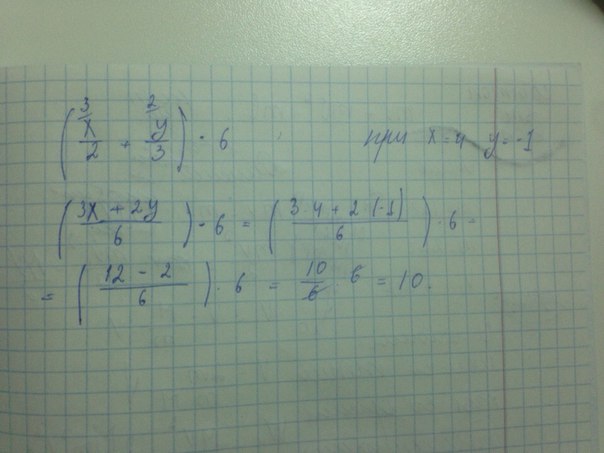 (³x/2 + ²y/3) · 6 при x=4 y=-1
(3x + 2y / 6) · 6 = (3·4 + 2·(-1) / 6) · 6 =
= (12 - 2 / 6) · 6 = 10/6 · 6 = 10.